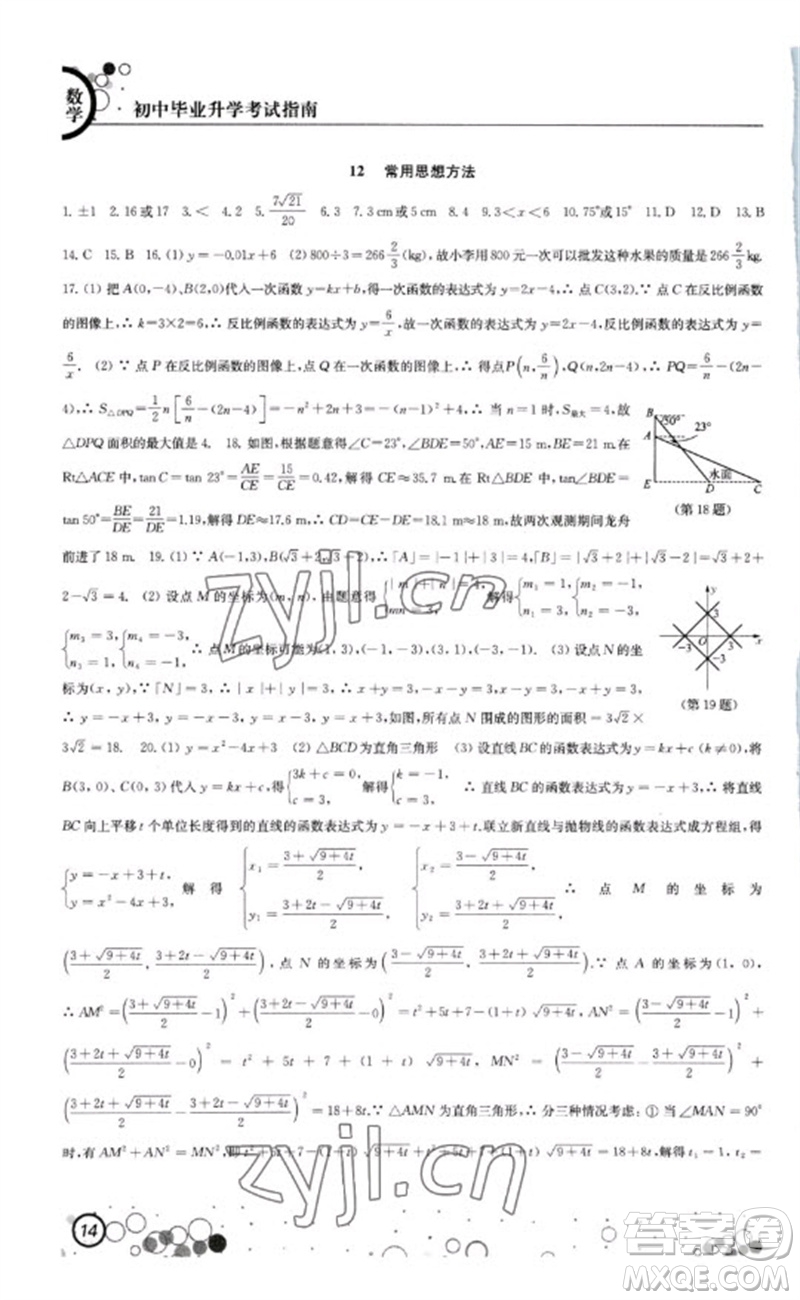 数学
初中毕业升学考试指南
12 常用思想方法
1. ±1 2. 16或17 3. < 4. 2 5. 7√21/20 6. 3 7. 3 cm或5 cm 8. 4 9. 3<x<6 10. 75°或15° 11. D 12. D 13. B
14. C 15. B 16. (1) y=-0.01x+6 (2) 800÷3=266 2/3(kg),故小李用800元一次可以批发这种水果的质量是266 2/3 kg.
17. (1) 把A(0,-4)、B(2,0)代入一次函数y=kx+b,得一次函数的表达式为y=2x-4,∴ C(3,2).∵ 点C在反比例函数
的图像上,∴ k=3×2=6,∴ 反比例函数的表达式为y=6/x,∴ 反比例函数的表达式为y=
6/x. (2) ∵ 点P在反比例函数的图像上,点Q在一次函数的图像上,∴ 得点P(n,6/n),Q(n,2n-4),∴ PQ=6/n-(2n-
4),∴ S△DPQ=1/2 n[6/n-(2n-4)]=-n²+2n+3=-(n-1)²+4,∴ 当n=1时,S最大=4,故
△DPQ面积的最大值是4. 18. 如图,根据题意,得∠C=23°,∠BDE=50°,AE=15 m,BE=21 m.在
Rt△ACE中,tan C=tan 23°=AE/CE=15/CE=0.42,解得CE≈35.7 m.在Rt△BDE中,tan∠BDE=
tan 50°=BE/DE=21/DE=1.19,解得DE≈17.6 m,∴ CD=CE-DE=18.1 m≈18 m.故两次观测期间龙舟
前进了18 m. 19. (1) ∵ A(-1,3),B(√3+2,√3-2),∴「A」=|-1|+|3|=4,「B」=|√3+2|+|√3-2|=√3+2+
2-√3=4. (2) 设点M的坐标为(m,n),由题意得{|m|+|n|=4, mn=3, 解得{m₁=1, n₁=3, {m₂=-1, n₂=-3,
{m₃=3, n₃=1, {m₄=-3, n₄=-1, ∴ 点M的坐标可能为(1,3),(-1,-3),(3,1),(-3,-1). (3) 设点N的坐
标为(x,y),∵「N」=3,∴ |x|+|y|=3,∴ x+y=3或x-y=3或-x-y=3或-x+y=3,
∴ y=-x+3,y=x-3,y=-x-3,y=x+3,如图,所有点N围成的图形的面积=3√2×
3√2=18. 20. (1) (2) △BCD为直角三角形 (3) 设直线BC的函数表达式为y=kx+c(k≠0),将
B(3,0)、C(0,3)代入y=kx+c,得{3k+c=0, c=3, 解得{k=-1, c=3, ∴ 直线BC的函数表达式为y=-x+3,∴ 将直线
BC向上平移t个单位长度得到的直线的函数表达式为y=-x+3+t.联立新直线与抛物线的函数表达式成方程组,得
{y=-x+3+t, y=x²-4x+3, 解得{x₁=(3+√(9+4t))/2, y₁=(3+2t-√(9+4t))/2, {x₂=(3-√(9+4t))/2, y₂=(3+2t+√(9+4t))/2, ∴ 点M的坐标为
((3+√(9+4t))/2,(3+2t-√(9+4t))/2),点N的坐标为((3-√(9+4t))/2,(3+2t+√(9+4t))/2).∵ 点A的坐标为(1,0),
∴ AM²=((3+√(9+4t))/2-1)²+((3+2t-√(9+4t))/2-0)²=t²+5t+7-(1+t)√(9+4t),AN²=((3-√(9+4t))/2-1)²+
((3+2t+√(9+4t))/2-0)²=t²+5t+7+(1+t)√(9+4t),MN²=((3-√(9+4t))/2-(3+√(9+4t))/2)²+
((3+2t+√(9+4t))/2-(3+2t-√(9+4t))/2)²=18+8t.∵ △AMN为直角三角形,∴ 分三种情况考虑:① 当∠MAN=90°
时,有AM²+AN²=MN²,即t²+5t+7-(1+t)√(9+4t)+t²+5t+7+(1+t)√(9+4t)=18+8t,解得t₁=1,t₂=
B 50° 23° A 水面 E D C
(第18题)
y 3 -3 O 3 x -3
(第19题)
zyjl.cn
zyjl.cn
14
答案圈
MXQE.COM